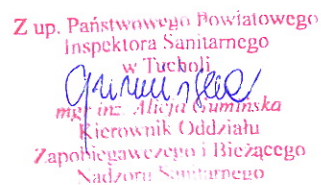 Z up. Państwowego Powiatowego
Inspektora Sanitarnego
w Tucholi
mgr inż. Alicja Gumińska
Kierownik Oddziału
Zapobiegawczego i Bieżącego
Nadzoru Sanitarnego